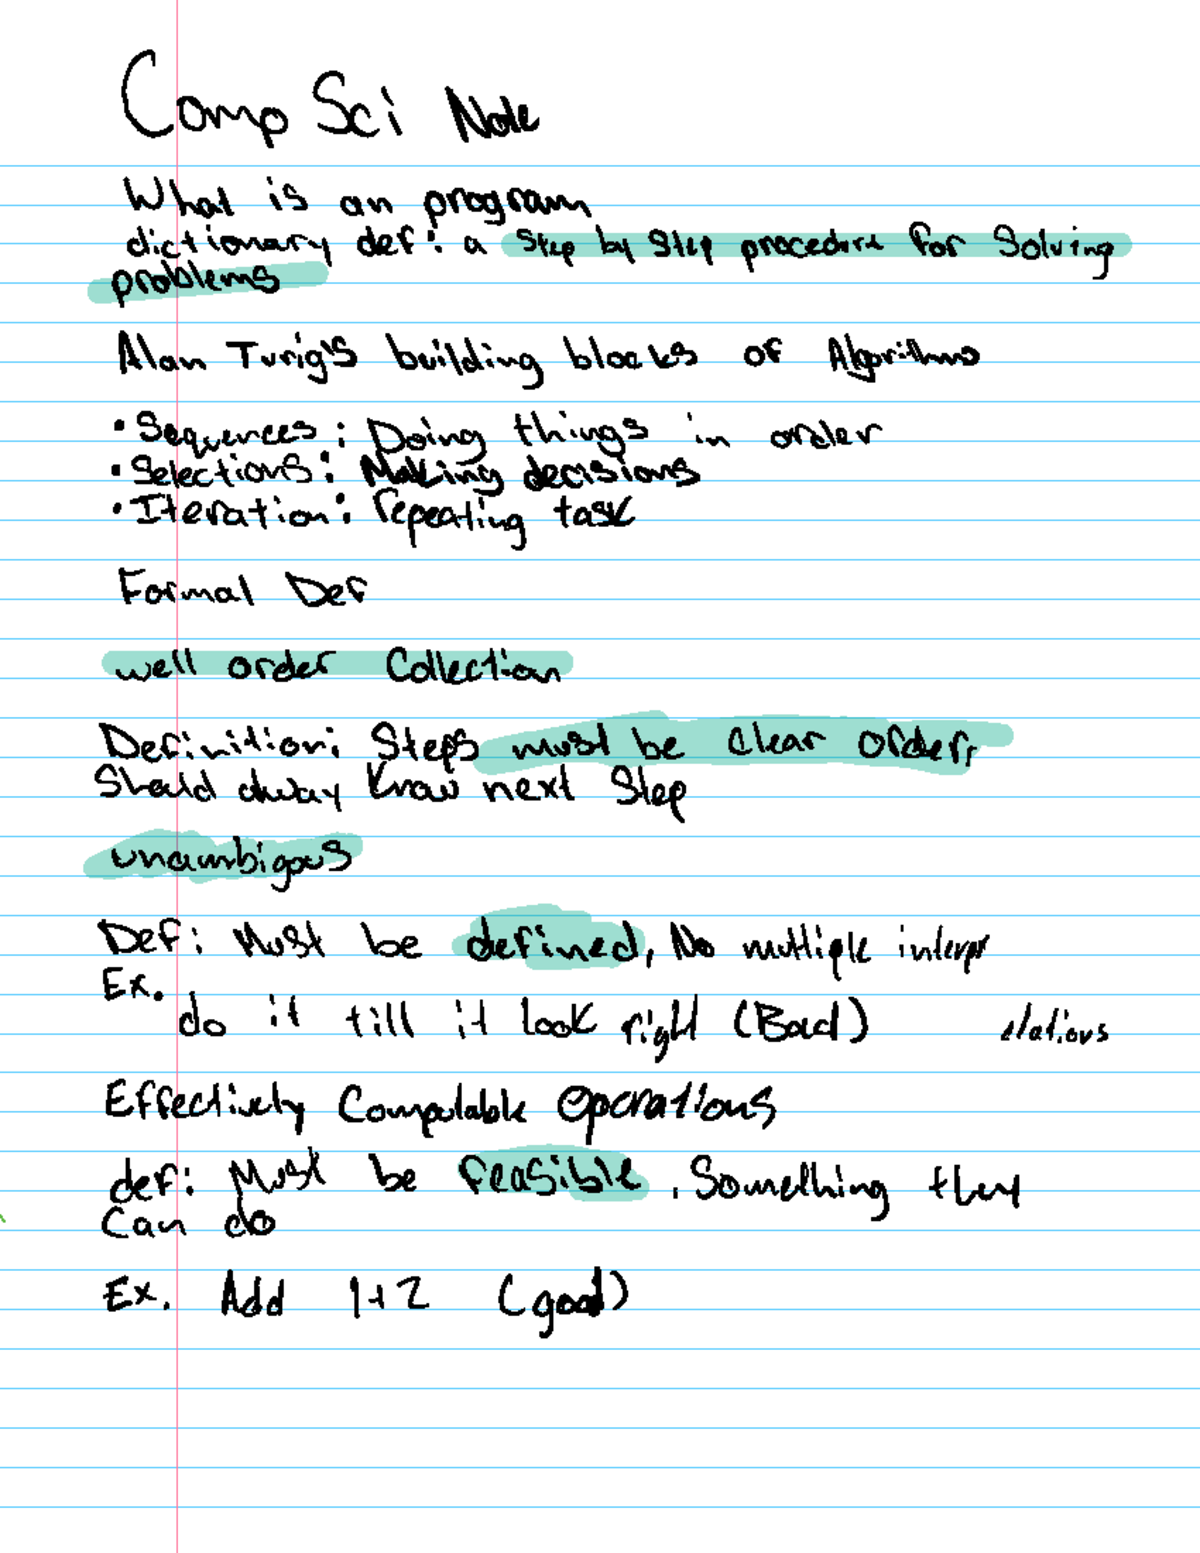 Comp Sci Note
What is an program
dictionary def: a Step by Step procedure for Solving
problems
Alan Turig's building blocks of Algorithms
• Sequences: Doing things in order
• Selections: Making decisions
• Iteration: repeating task
Formal Def
well order Collection
Definition: Steps must be clear order,
Should alway know next Step
unambigous
Def: Must be defined, No multiple interpr
Ex.
do it till it look right (Bad) etations
Effectively Computable Operations
def: Must be feasible. Something they
Can do
Ex. Add 1+2 (good)